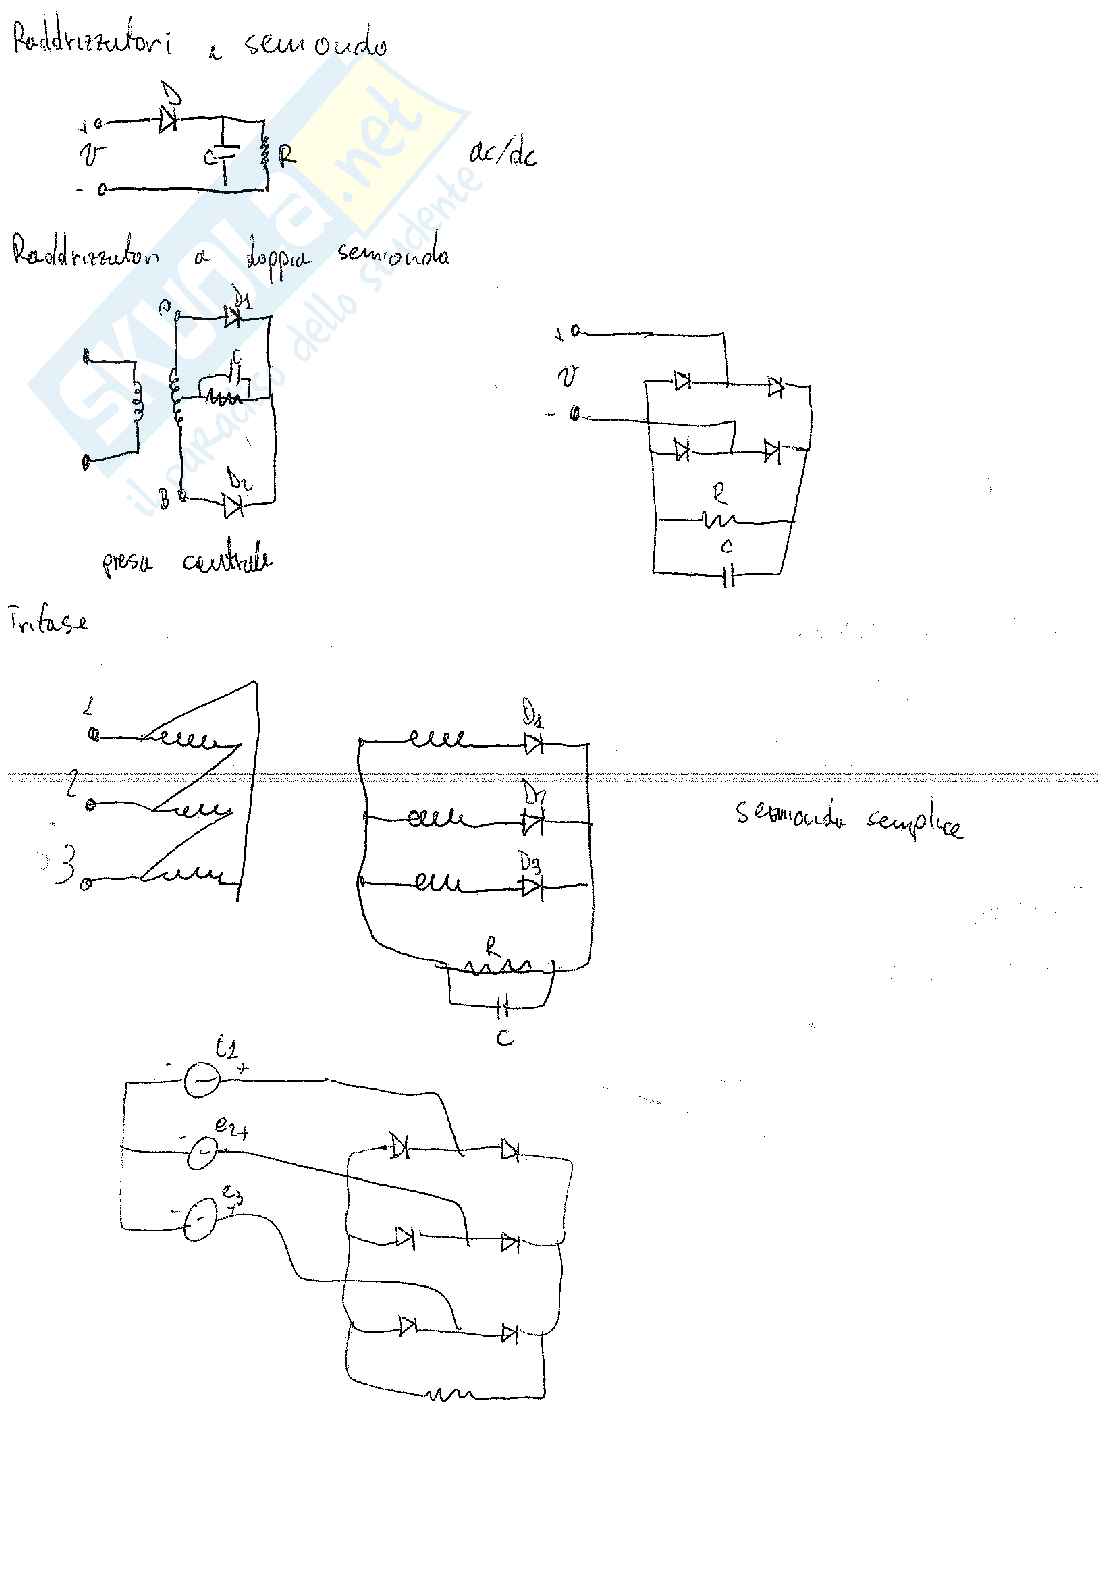 Raddrizzatori a semionda
D
+
V
-
C
R
ac/dc
Raddrizzatori a doppia semionda
D1
C
B
D2
presa centrale
+
V
-
R
C
Trifase
1
2
3
D1
D2
D3
R
C
semionda semplice
- e1 +
- e2 +
- e3 +
SKUOLA.net
il paradiso dello studente